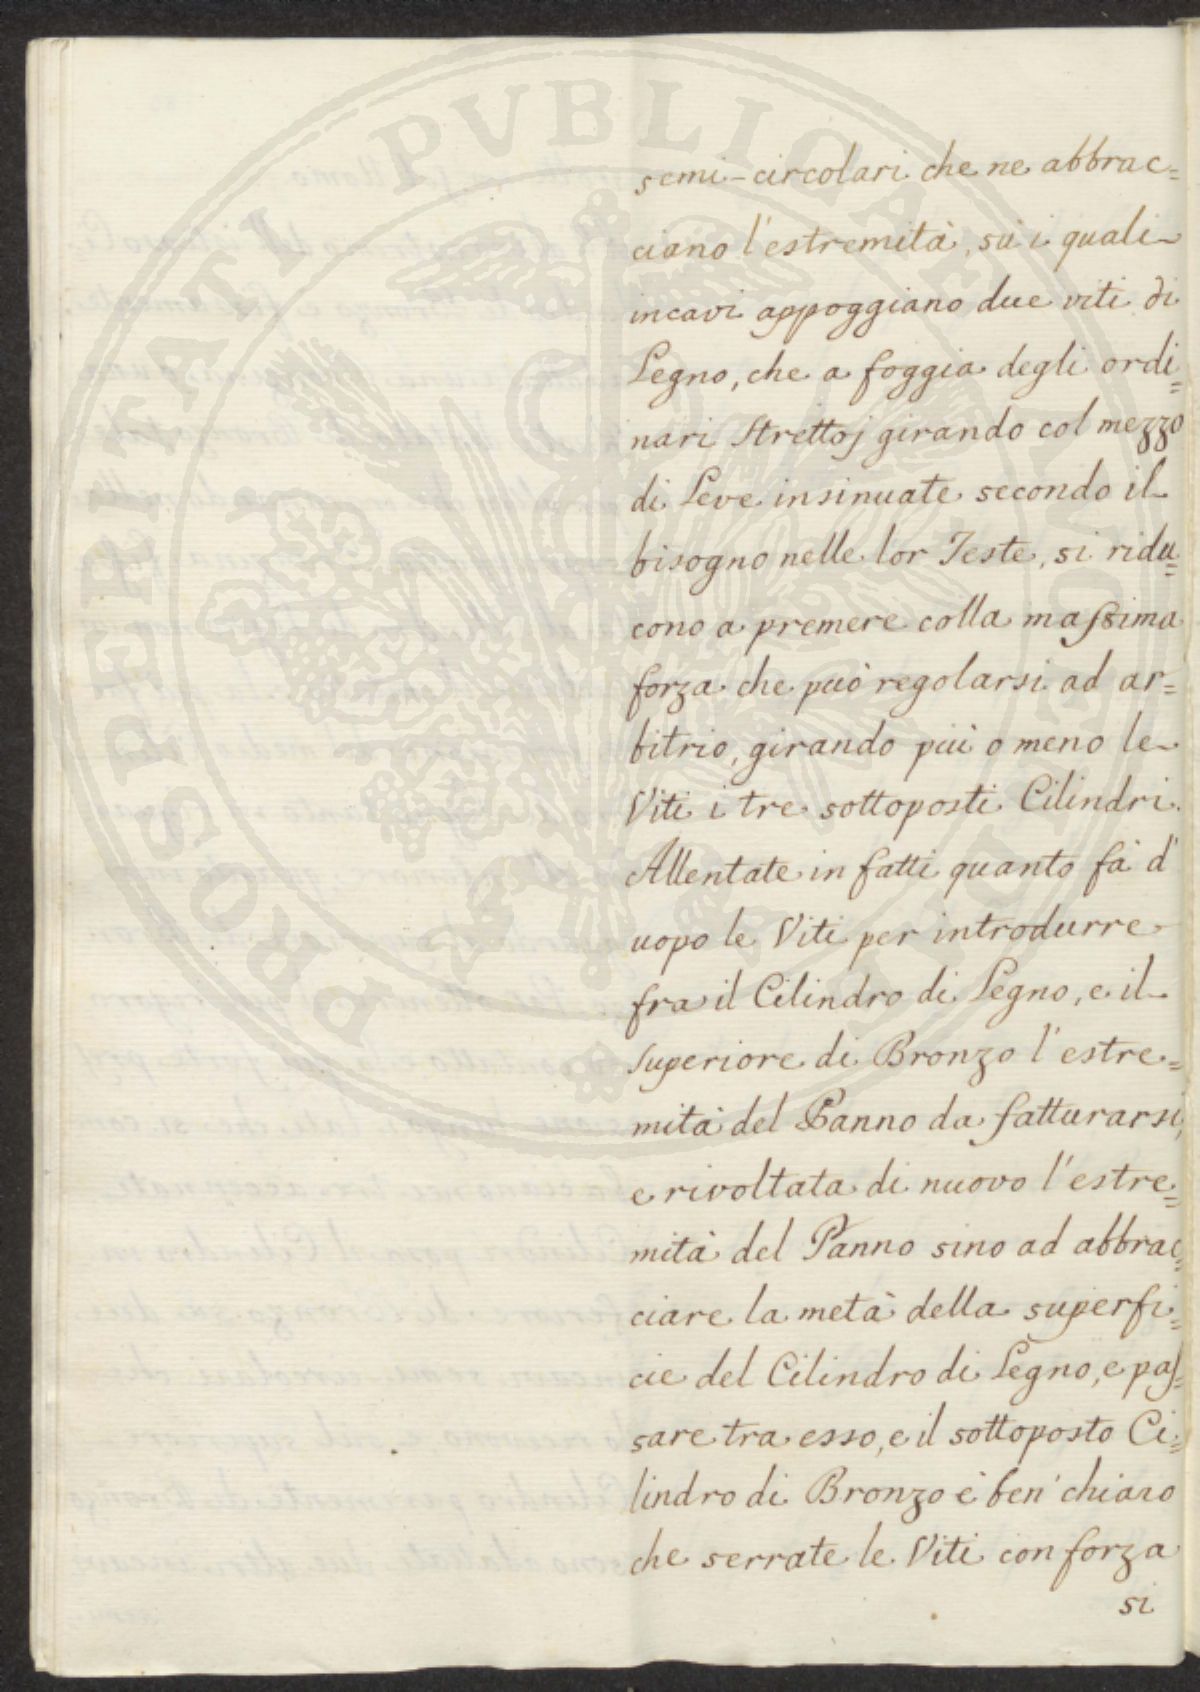 semi-circolari che ne abbrac=
ciano l'estremità, sù i quali
incavi appoggiano due viti di
Legno, che a foggia degli ordi=
nari Strettoj girando col mezzo
di Leve insinuate secondo il
bisogno nelle lor Teste, si ridu=
cono a premere colla maſsima
forza che può regolarsi ad ar=
bitrio, girando più o meno le
Viti i tre sottoposti Cilindri.
Allentate in fatti quanto fà d'
uopo le Viti per introdurre
fra il Cilindro di Legno, e il
Superiore di Bronzo l'estre=
mità del Panno da fatturarsi,
e rivoltata di nuovo l'estre=
mità del Panno sino ad abbrac=
ciare la metà della superfi=
cie del Cilindro di Legno, e paſ=
sare tra esso, e il sottoposto Ci=
lindro di Bronzo è ben' chiaro
che serrate le Viti con forza
si
PROSPERITATI PVBLICAE AVGENDAE